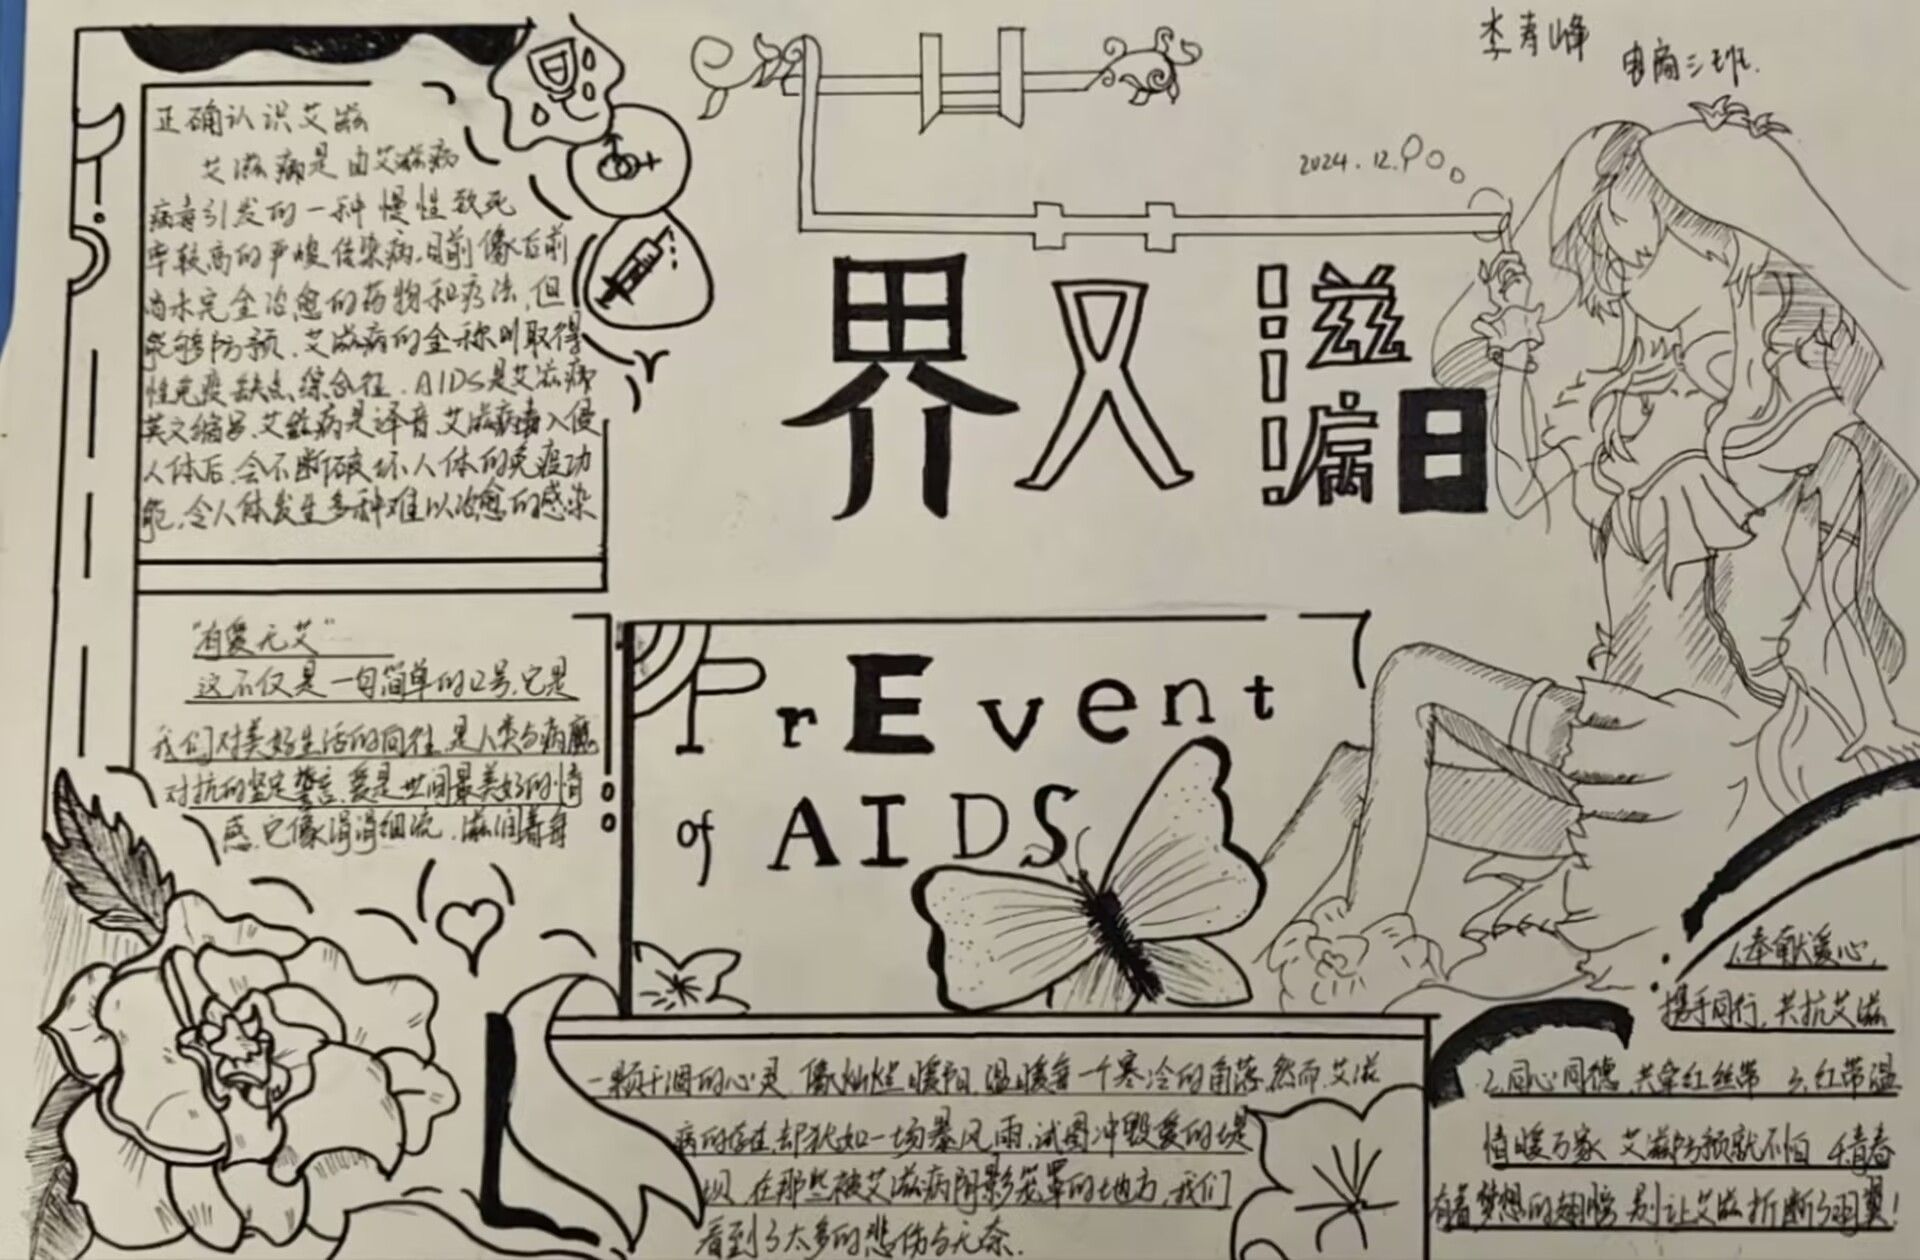 李春峰
电商三班.
2024.12.
界艾滋病日
正确认识艾滋
艾滋病是由艾滋病
病毒引发的一种慢性致死
率较高的严峻传染病.目前
尚未完全治愈的药物和疗法,但
能够防预.艾滋病的全称叫取得
性免疫缺点综合征.AIDS是艾滋病
英文缩写.艾滋病是译音.艾滋病毒入侵
人体后,会不断破坏人体的免疫功
能,令人体发生多种难以治愈的感染
"有爱无艾"
这不仅是一句简单的口号,它是
我们对美好生活的向往,是人类与病魔
对抗的坚定誓言,爱是世间最美好的情
感,它像涓涓细流,滋润着每
PrEvent
of AIDS
一颗干涸的心灵,像灿烂暖阳,温暖每一个寒冷的角落,然而,艾滋
病的存在,却犹如一场暴风雨,试图冲毁爱的堤
坝.在那些被艾滋病阴影笼罩的地方,我们
看到了太多的悲伤与无奈.
1.奉献爱心,
携手同行,共抗艾滋
2.同心同德,共牵红丝带 3.红带温
情暖万家 艾滋防预就不怕 4.青春
有着梦想的翅膀 别让艾滋折断了羽翼!